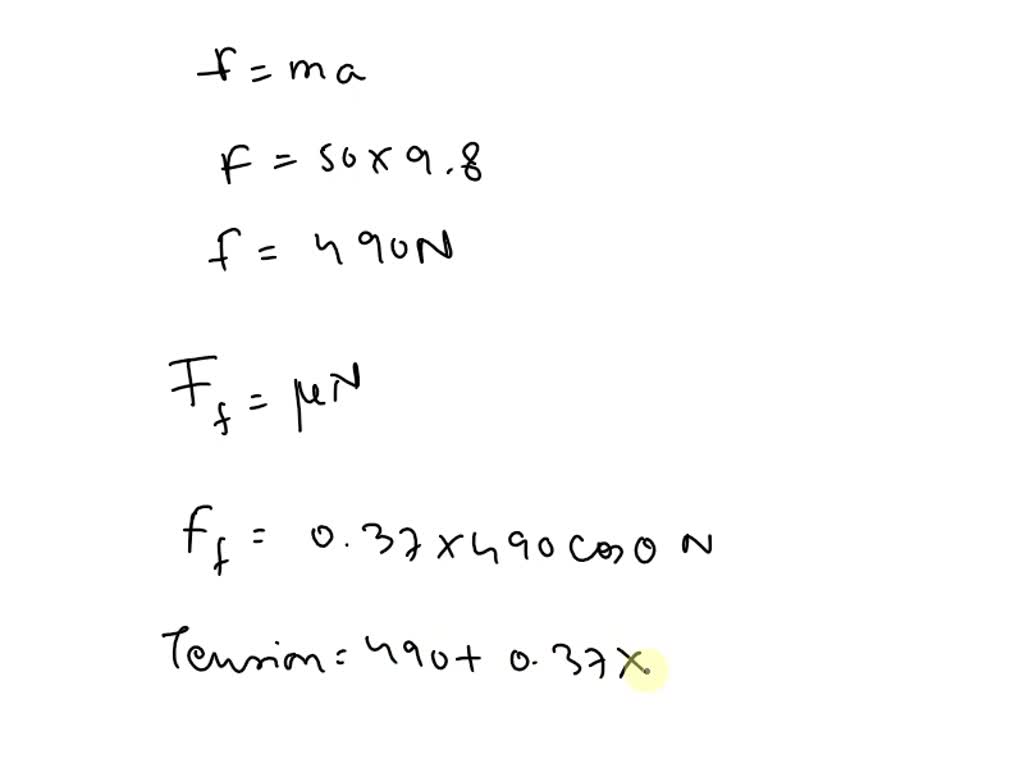 f = ma
F = 50 x 9.8
f = 490N
F_f = μN
f_f = 0.37 x 490 cos θ N
Tension = 490 + 0.37 x